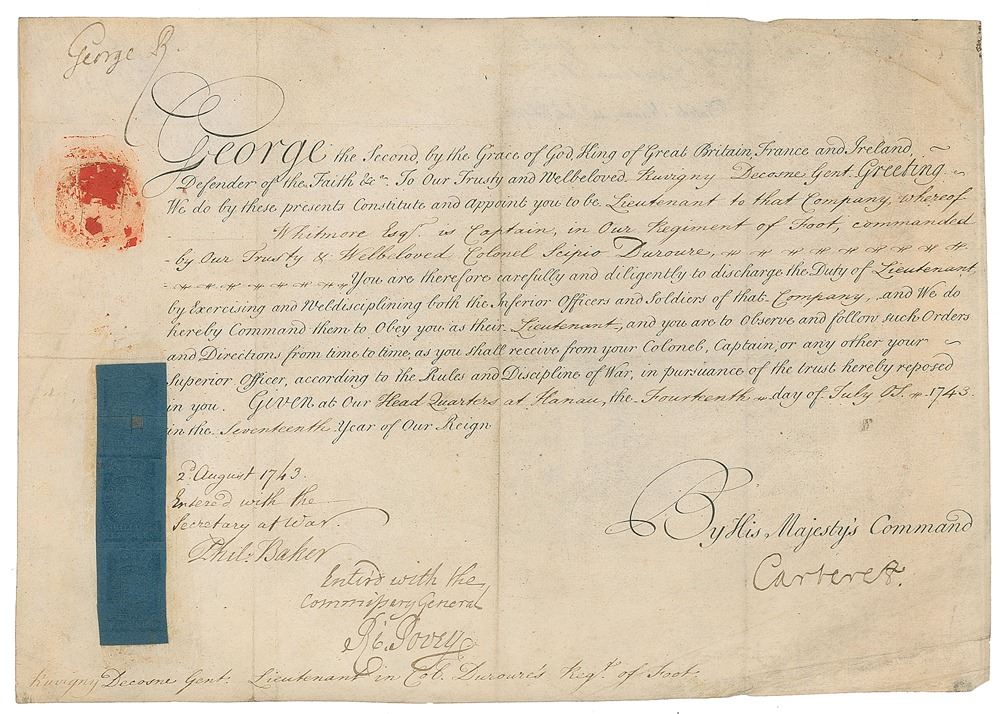 George R
George the Second, by the Grace of God, King of Great Britain, France and Ireland, ~
Defender of the Faith &c.a To Our Trusty and Welbeloved Ruvigny Decosne Gent. Greeting ~
We do by these presents Constitute and Appoint you to be Lieutenant to that Company, whereof
Whitmore Esqr. is Captain, in Our Regiment of Foot, commanded
by Our Trusty & Welbeloved Colonel Scipio Duroure,
You are therefore carefully and diligently to discharge the Duty of Lieutenant,
by Exercising and Weldisciplining both the Inferior Officers and Soldiers of that Company, and We do
hereby Command them to Obey you as their Lieutenant, and you are to Observe and follow such Orders
and Directions from time to time, as you shall receive from your Colonel, Captain, or any other your ~
Superior Officer, according to the Rules and Discipline of War, in pursuance of the trust hereby reposed
in you. GIVEN at Our Head Quarters at Hanau, the Fourteenth day of July OS. 1743.
in the Seventeenth Year of Our Reign
2d. August 1743.
Enter'd with the
Secretary at War.
Phil: Baker
By His Majesty's Command
Carteret.
Enterd with the
Commissary General
Ri: Povey
Ruvigny Decosne Gent. Lieutenant in Col. Duroure's Regt. of Foot.